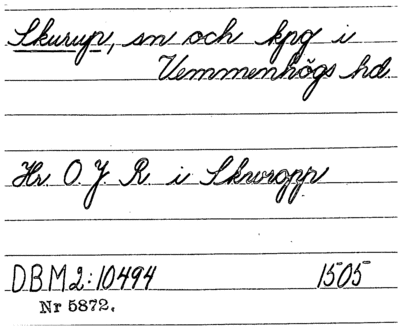 Skurup, sn och kpg i
Vemmenhögs hd.
Hr. O. J. R. i Skworopp
DBM2:10494 1505
Nr 5872.